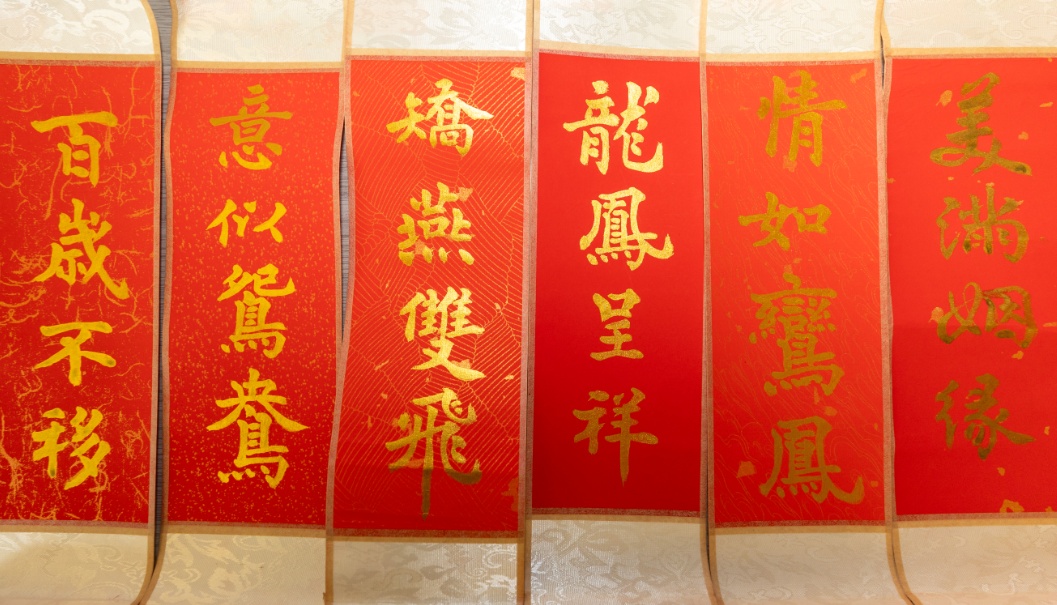 美滿姻緣
情如鸞鳳
龍鳳呈祥
矯燕雙飛
意似鴛鴦
百歲不移